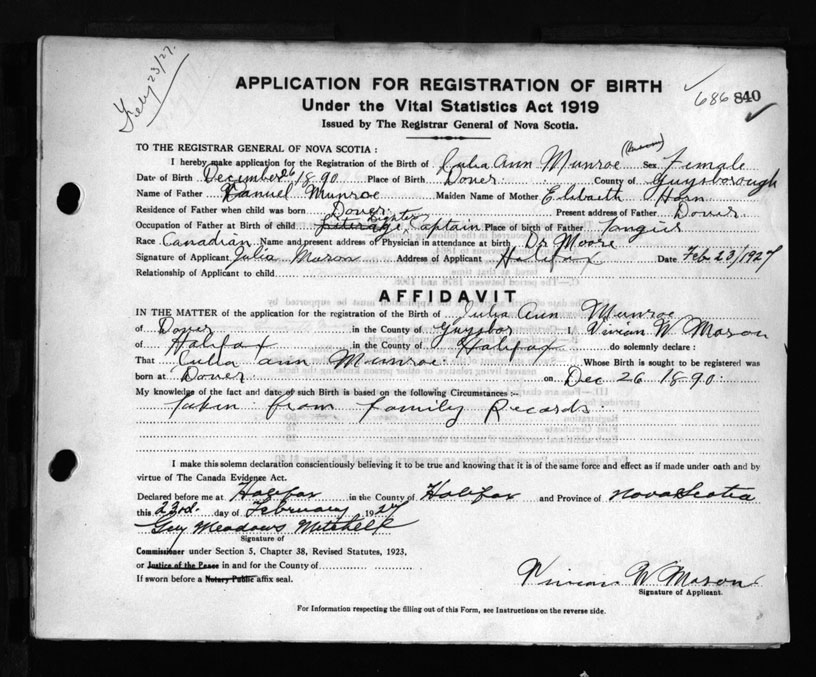 Feby 23/27.
APPLICATION FOR REGISTRATION OF BIRTH
686 840
Under the Vital Statistics Act 1919
Issued by The Registrar General of Nova Scotia.
TO THE REGISTRAR GENERAL OF NOVA SCOTIA :
I hereby make application for the Registration of the Birth of Julia Ann Munroe Sex Female
Date of Birth December 26 1890 Place of Birth Dover County of Guysborough
Name of Father Daniel Munroe Maiden Name of Mother Elsbaeth Horn
Residence of Father when child was born Dover Present address of Father Dover
Occupation of Father at Birth of child Lighter Captain Place of birth of Father Tangier
Race Canadian Name and present address of Physician in attendance at birth Dr Moore
Signature of Applicant Julia Mason Address of Applicant Halifax Date Feb 23/1927
Relationship of Applicant to child
AFFIDAVIT
IN THE MATTER of the application for the registration of the Birth of Julia Ann Munroe
of Dover in the County of Guysbor I, Vivian W. Mason
of Halifax in the County of Halifax do solemnly declare :
That Julia ann Munroe Whose Birth is sought to be registered was
born at Dover on Dec 26 1890
My knowledge of the fact and date of such Birth is based on the following Circumstances :—
Taken from Family Records
I make this solemn declaration conscientiously believing it to be true and knowing that it is of the same force and effect as if made under oath and by
virtue of The Canada Evidence Act.
Declared before me at Halifax in the County of Halifax and Province of Nova Scotia
this 23rd. day of February 1927
Guy Meadows Mitchell
Signature of
Commissioner under Section 5, Chapter 38, Revised Statutes, 1923,
or Justice of the Peace in and for the County of
If sworn before a Notary Public affix seal.
Vivian W Mason
Signature of Applicant.
For Information respecting the filling out of this Form, see Instructions on the reverse side.